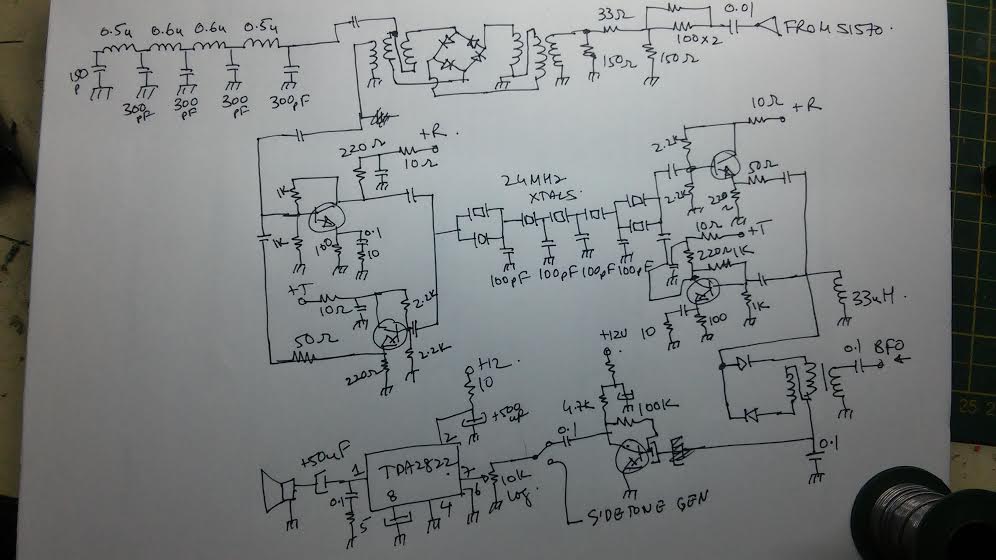 0.5u 0.6u 0.6u 0.5u
150
P
300
PF
300
PF
300
PF
300
PF
33Ω
100x2
0.01
FROM SI570.
150Ω
150Ω
+R.
220Ω
10Ω
1K
1K
100
0.1
10
+T
10Ω
2.2K
50Ω
2.2K
220Ω
24MHz
XTALS
100PF 100PF 100PF 100PF
10Ω
+R
2.2K
2.2K
50Ω
220
Ω
10Ω
+T
220Ω
1K
1K
10
100
33uH.
0.1 BFO
0.1
+12V
4.7K
100K
0.1
+12
10
+50uF
TDA2822
1
2
7
6
8
5
4
0.1
10K
log.
SIDETONE GEN
25